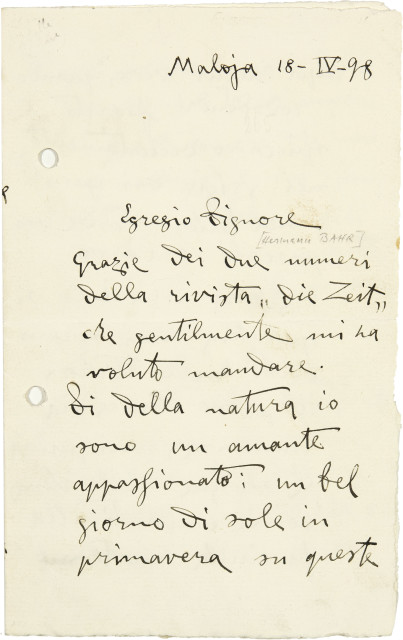 Maloja 18-IV-98
Egregio Signore
[Hermann BAHR]
Grazie dei due numeri
della rivista „die Zeit„
che gentilmente mi ha
voluto mandare.
Si della natura io
sono un amante
appassionato: un bel
giorno di sole in
primavera su queste